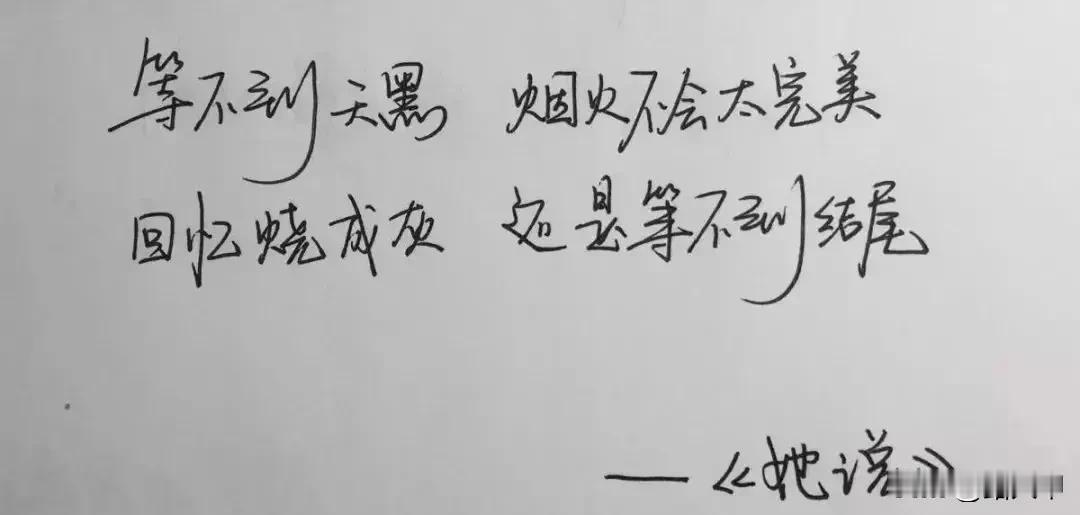 等不到天黑 烟火不会太完美
回忆烧成灰 还是等不到结尾
——《她说》